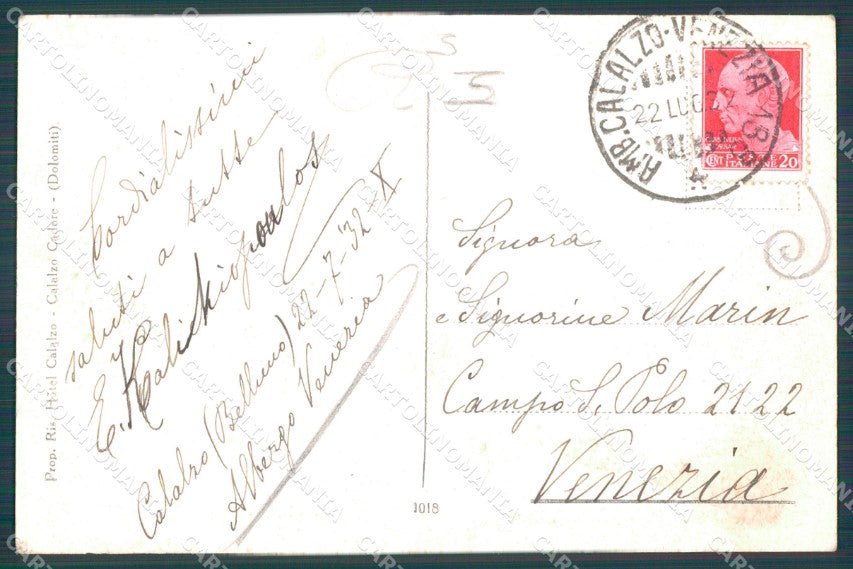 Prop. Ris. Hôtel Calalzo - Calalzo Cadore - (Dolomiti).
Cordialissimi
saluti a tutte
E. Kalichiopoulos
Calalzo (Belluno) 22-7-'32-X
Albergo Venezia
1018
AMB. CALALZO-VENEZIA 18
22 LUG
CENT 20
Signora
e Signorine Marin
Campo S. Polo 2122
Venezia
CARTOLINOMANIA